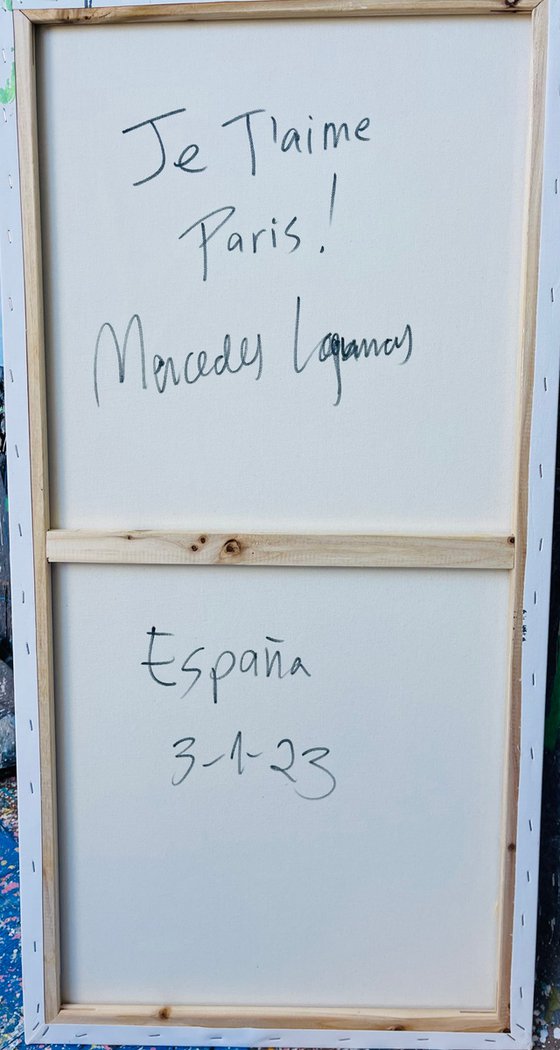 Je T'aime
Paris!
Mercedes Lagunas
España
3-1-23